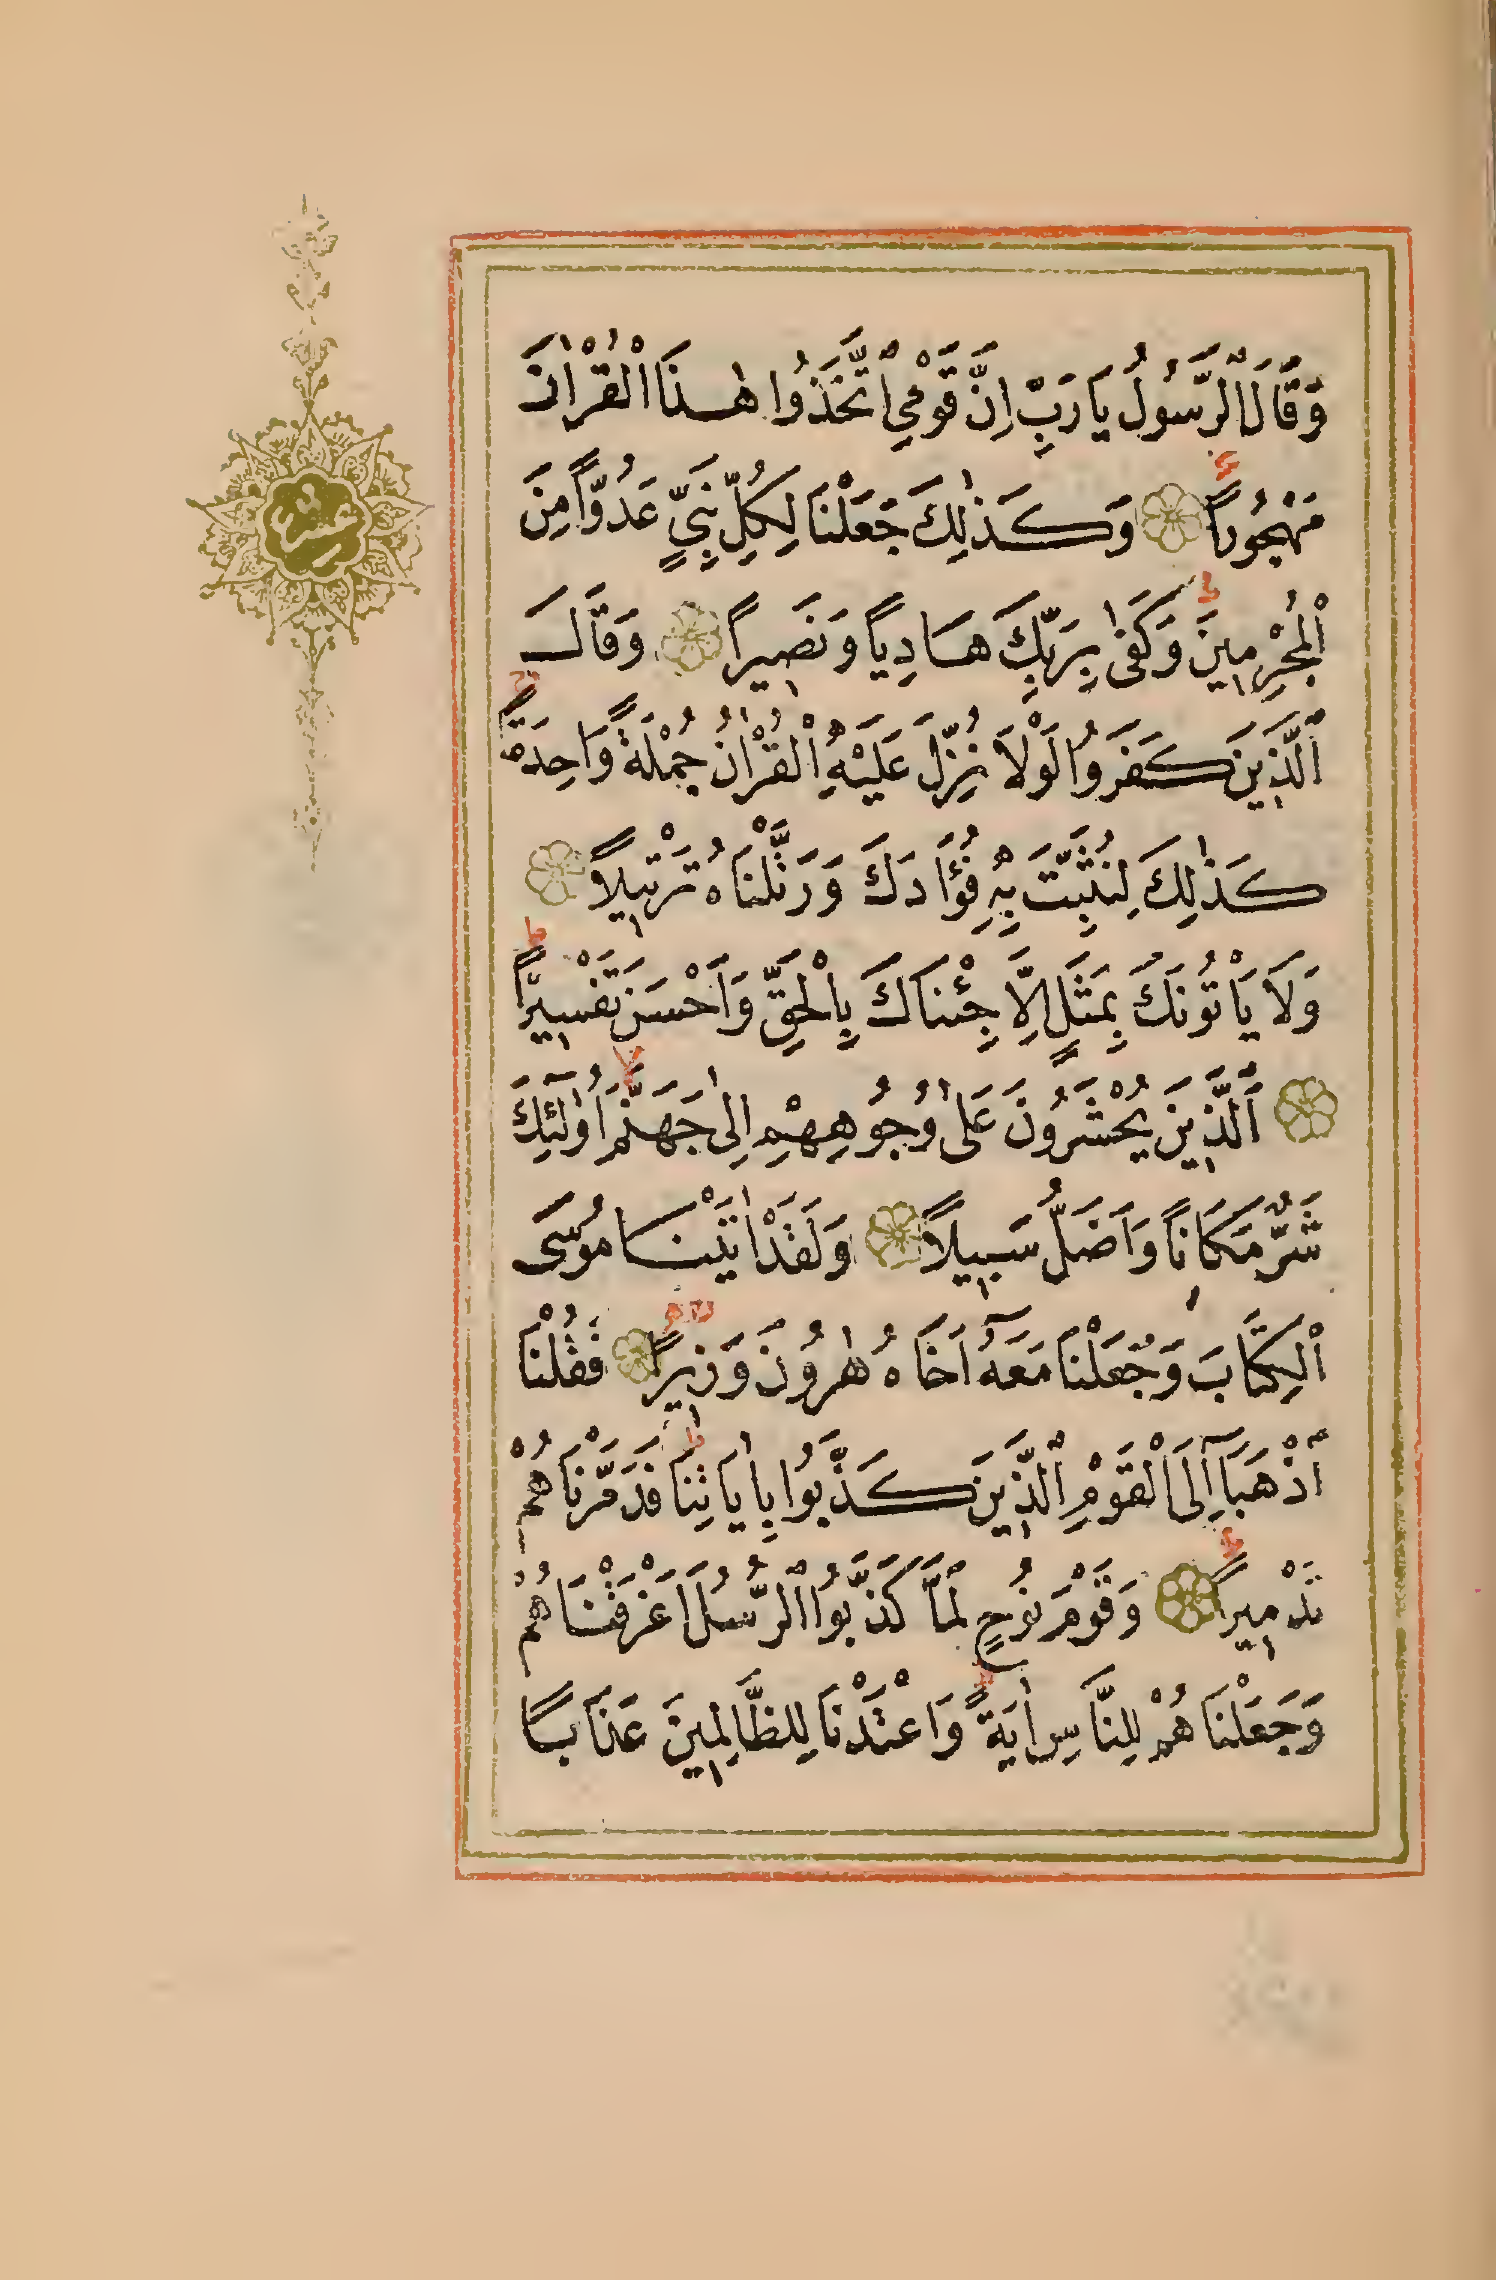 وَقَالَ ٱلرَّسُولُ يَارَبِّ اِنَّ قَوْمِي ٱتَّخَذُوا هٰذَا ٱلْقُرْاٰنَ
مَهْجُورًا وَكَذٰلِكَ جَعَلْنَا لِكُلِّ نَبِيٍّ عَدُوًّا مِنَ
ٱلْمُجْرِمِينَ وَكَفٰى بِرَبِّكَ هَادِيًا وَنَصِيرًا وَقَالَ
ٱلَّذِينَ كَفَرُوا لَوْلَا نُزِّلَ عَلَيْهِ ٱلْقُرْاٰنُ جُمْلَةً وَاحِدَةً
كَذٰلِكَ لِنُثَبِّتَ بِهِ فُؤَادَكَ وَرَتَّلْنَاهُ تَرْتِيلًا
وَلَا يَاْتُونَكَ بِمَثَلٍ اِلَّا جِئْنَاكَ بِالْحَقِّ وَاَحْسَنَ تَفْسِيرًا
ٱَلَّذِينَ يُحْشَرُونَ عَلٰى وُجُوهِهِمْ اِلٰى جَهَنَّمَ اُولٰٓئِكَ
شَرٌّ مَكَانًا وَاَضَلُّ سَبِيلًا وَلَقَدْ اٰتَيْنَا مُوسَى
ٱلْكِتَابَ وَجَعَلْنَا مَعَهُٓ اَخَاهُ هٰرُونَ وَزِيرًا فَقُلْنَا
ٱذْهَبَٓا اِلَى ٱلْقَوْمِ ٱلَّذِينَ كَذَّبُوا بِاٰيَاتِنَا فَدَمَّرْنَاهُمْ
تَدْمِيرًا وَقَوْمَ نُوحٍ لَمَّا كَذَّبُوا ٱلرُّسُلَ اَغْرَقْنَاهُمْ
وَجَعَلْنَاهُمْ لِلنَّاسِ اٰيَةً وَاَعْتَدْنَا لِلظَّالِمِينَ عَذَابًا